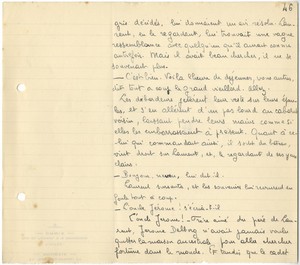 46
gris décidés, lui donnaient un air résolu. Lau-
rent, en le regardant, lui trouvait une vague
ressemblance avec quelqu'un qu'il aurait connu
autrefois. Mais il avait beau chercher, il ne
se souvenait plus.
— C'est bien. Voilà l'heure de déjeuner, vous autres,
dit tout à coup le grand vieillard. Allez.
Les débardeurs jetèrent leur veste sur leurs épau-
les, et s'en allèrent d'un pas lourd au cabaret
voisin, laissant pendre leurs mains comme si
elles les embarrassaient à présent. Quant à ce-
lui qui commandait aussi, il sortit du bateau,
vint droit sur Laurent, et, le regardant de ses yeux
clairs:
— Bonjour, neveu, lui dit-il.
Laurent sursauta, et les souvenirs lui revinrent en
foule tout à coup.
— L'oncle Jérôme! s'écria-t-il.
L'oncle Jérôme! Frère aîné du père de Lau-
rent, Jérôme n'avait jamais voulu
quitter la maison ancestrale, pour aller chercher
fortune dans le monde. Tandis que le cadet